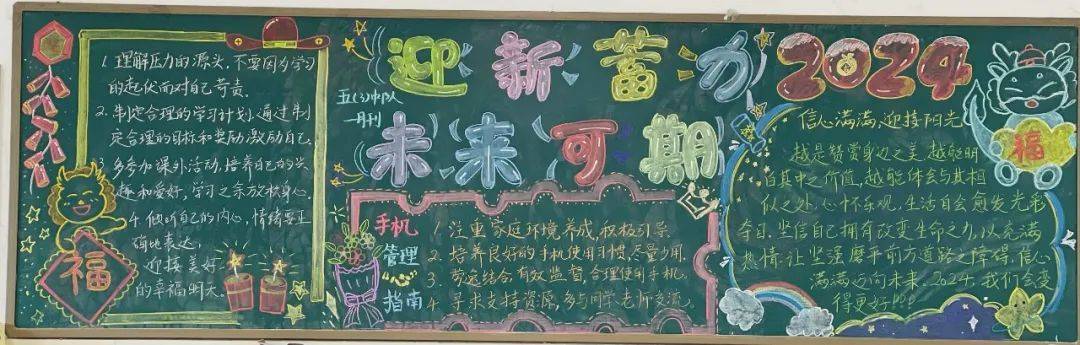 1. 理解压力的源头,不要因为学习
的起伏而对自己苛责.
2. 制定合理的学习计划,通过制
定合理的目标和奖励激励自己.
3. 多参加课外活动,培养自己的兴
趣和爱好,学习之余放松身心
4. 倾听自己的内心,情绪要正
确地表达,
迎接美好
的幸福明天.
福
迎新蓄力2024
五(3)中队
一月刊
未来可期
手机
管理
指南
1. 注重家庭环境养成,积极引导.
2. 培养良好的手机使用习惯,尽量少用.
3. 劳逸结合,有效监督,合理使用手机.
4. 寻求支持资源,多与同学、老师交流.
信心满满,迎接阳光
越是赞赏身边之美,越能明
白其中之价值,越能体会与其相
似之处,心怀乐观,生活自会愈发光彩
夺目.坚信自己拥有改变生命之力,以充满
热情,让坚强磨平前方道路之障碍.信心
满满迈向未来.2024,我们会变
得更好!!!
福